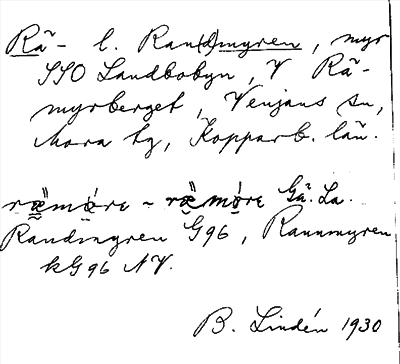 Rå̃- l. Ran(d)myren, myr
SSO Landbobyn, V Rå̃-
myrberget, Venjans sn,
Mora tg, Kopparb. län.
Gä. La.
Randmyren G96, Rannmyren
kG96 NV.
B. Lindén 1930